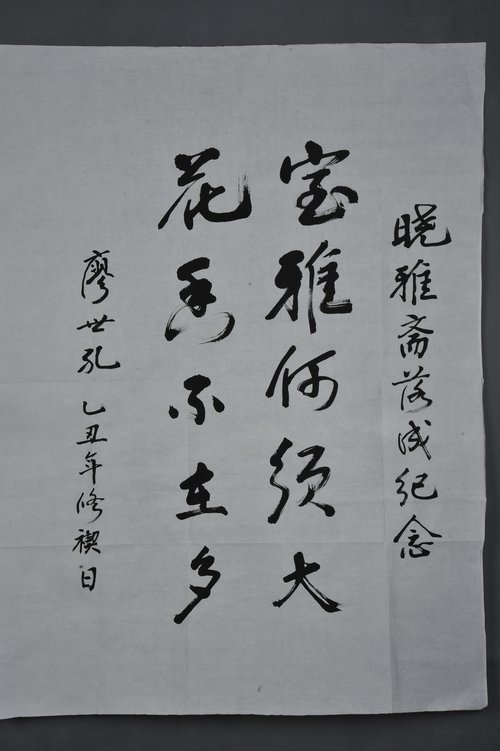 晓雅斋落成纪念
室雅何须大
花香不在多
廖世孔 乙丑年修禊日